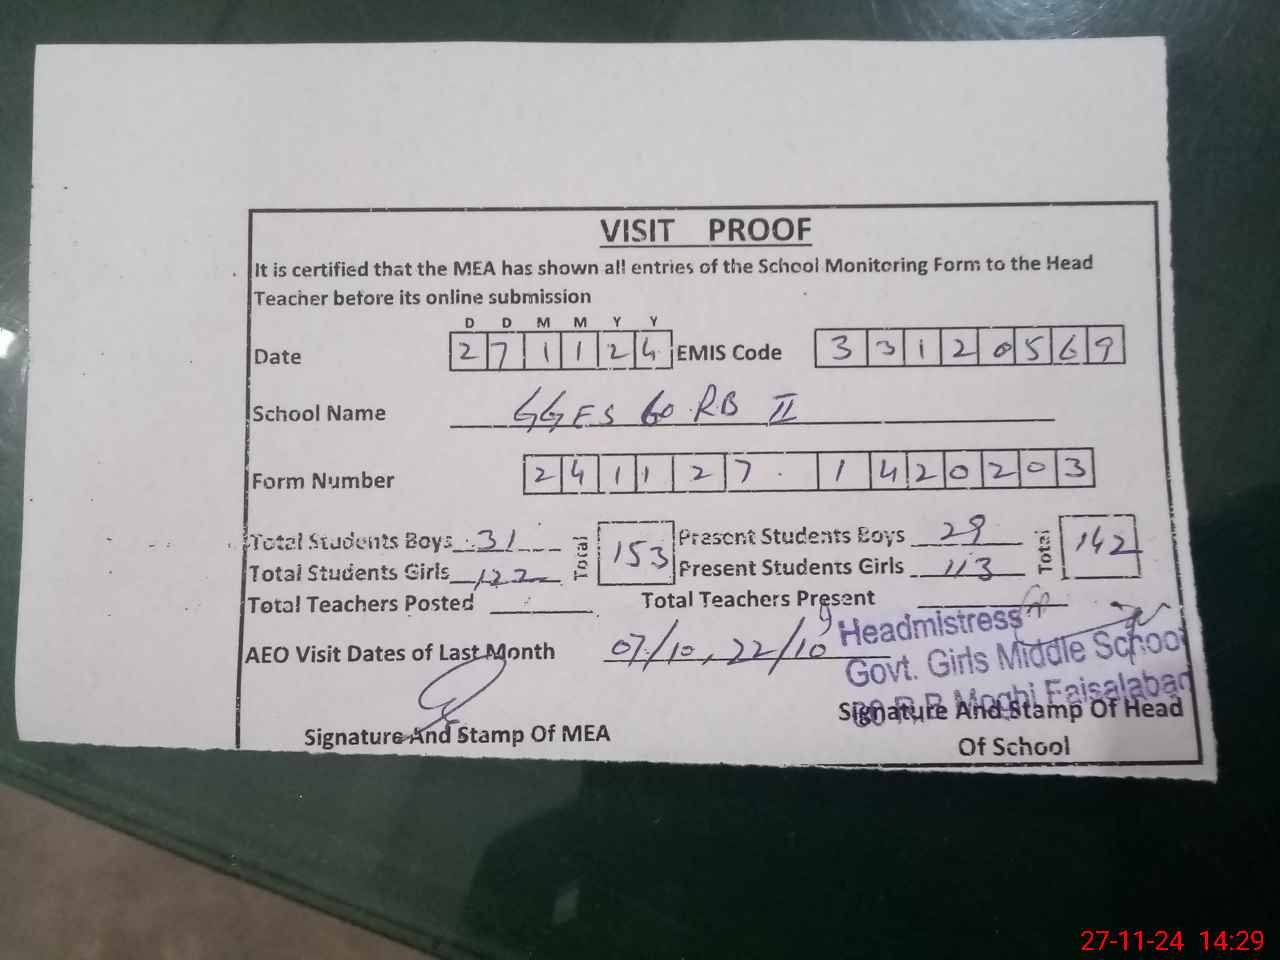 VISIT PROOF
It is certified that the MEA has shown all entries of the School Monitoring Form to the Head
Teacher before its online submission
D D M M Y Y
Date 2 7 1 1 2 4 EMIS Code 3 3 1 2 0 5 6 9
School Name GGES 60 RB II
Form Number 2 4 1 1 2 7 . 1 4 2 0 2 0 3
Total Students Boys 31 Total 153 Present Students Boys 29 Total 142
Total Students Girls 122 Present Students Girls 113
Total Teachers Posted Total Teachers Present
9
Headmistress
AEO Visit Dates of Last Month 07/10, 22/10
Govt. Girls Middle School
R.B Faisalabad
Signature And Stamp Of MEA
Signature And Stamp Of Head
Of School
27-11-24 14:29